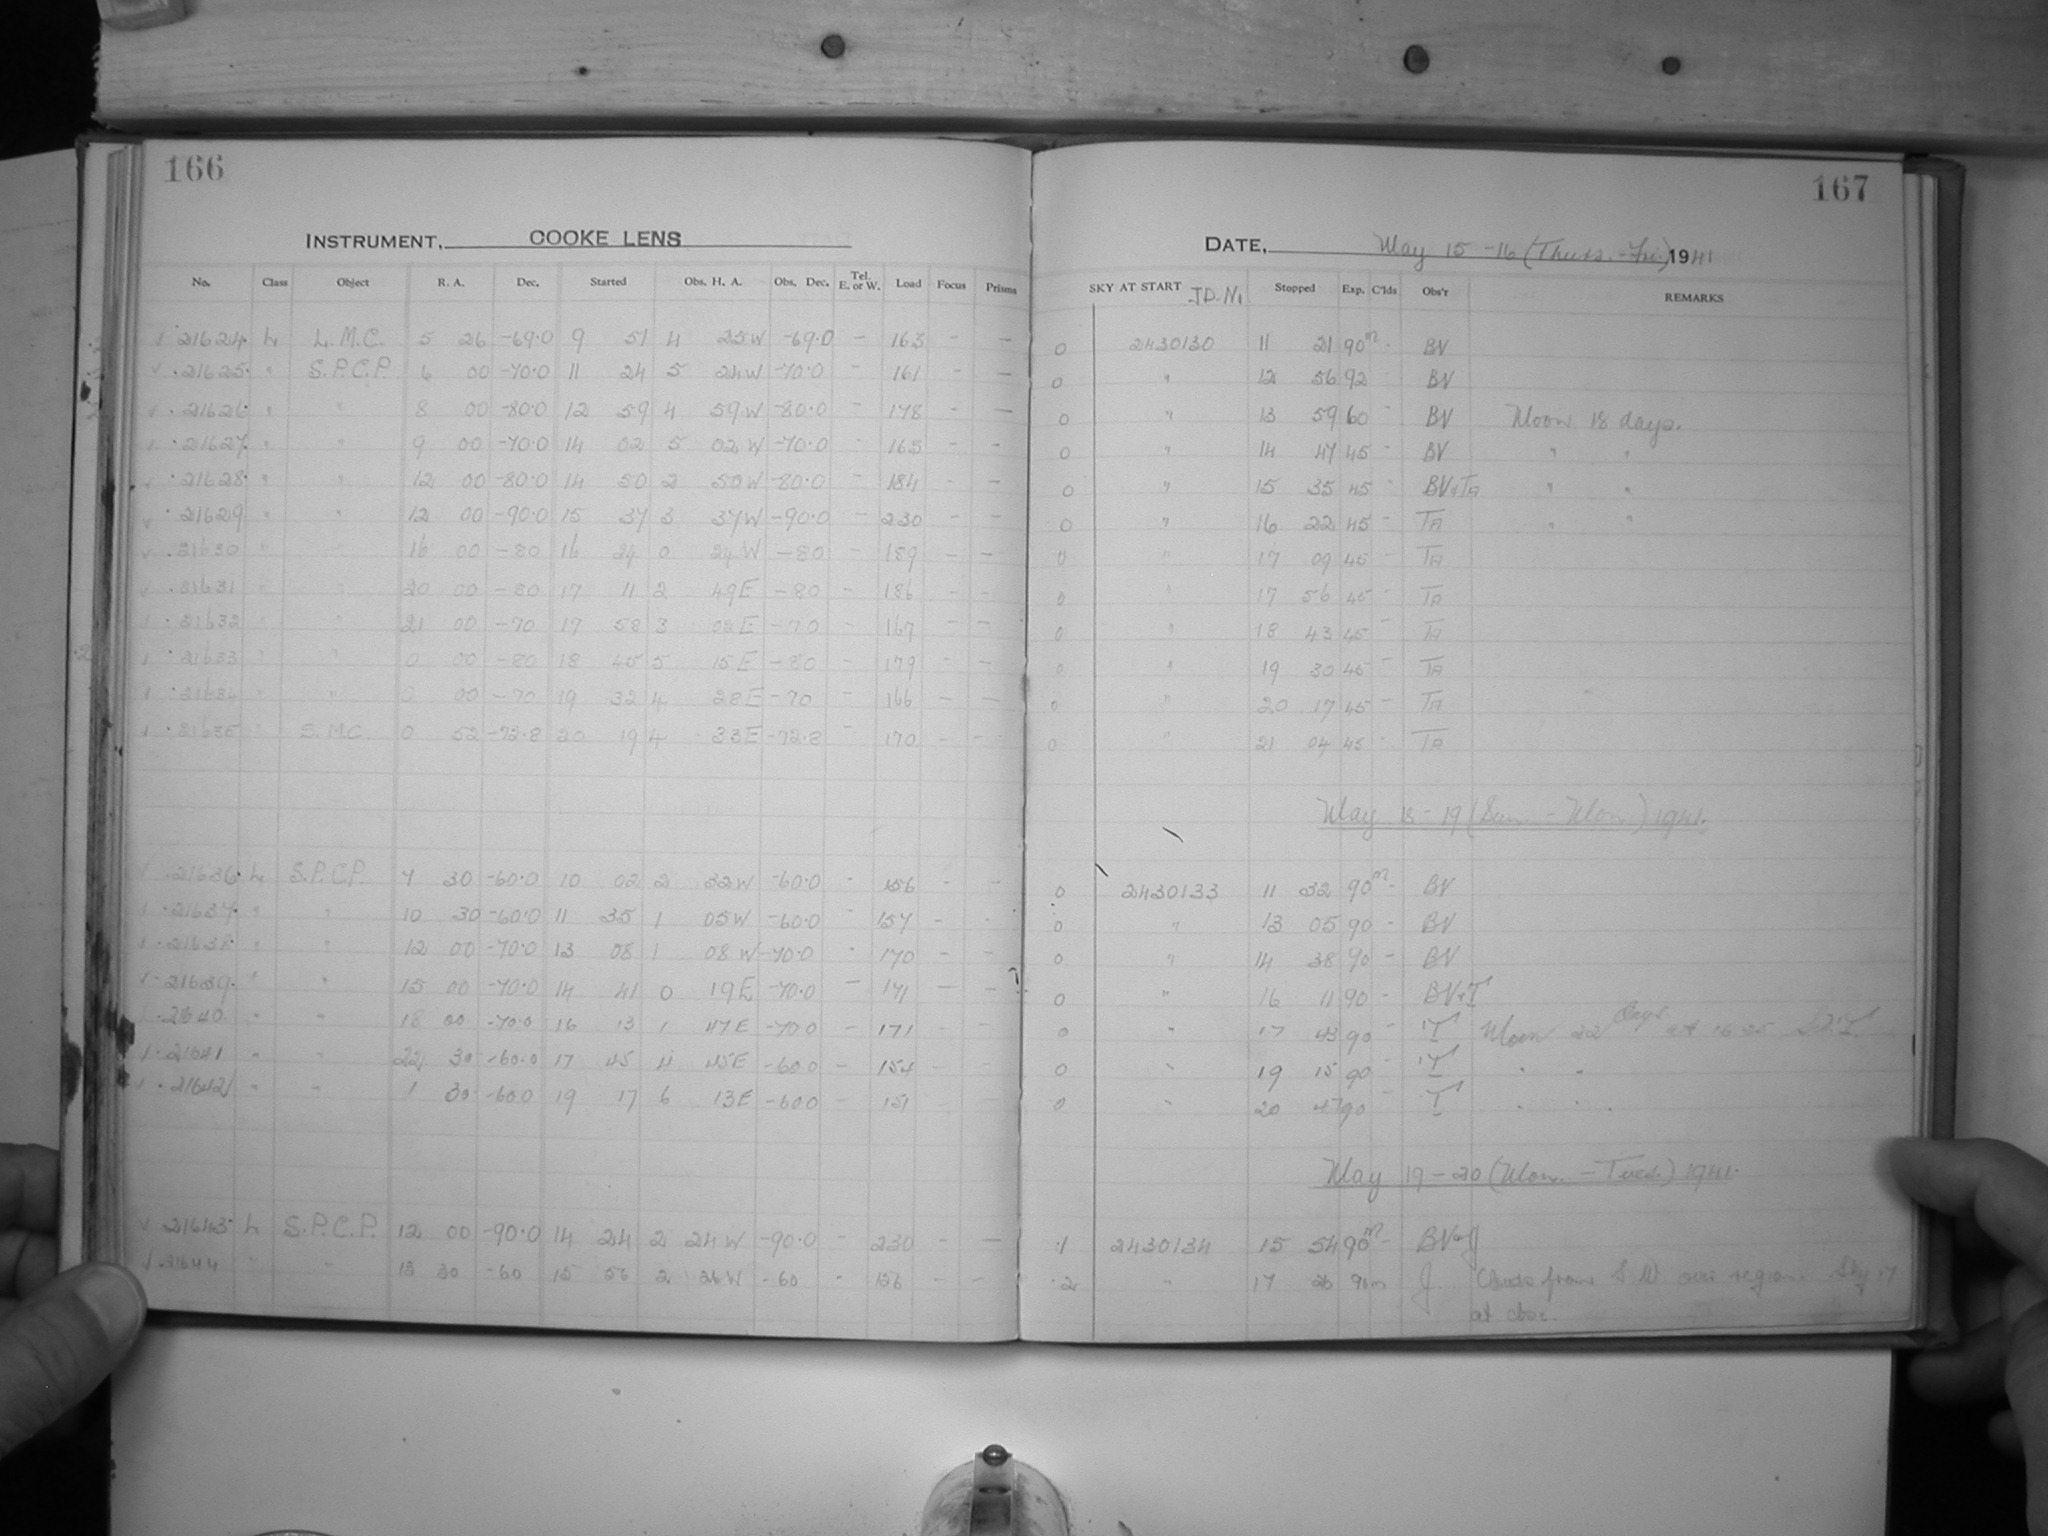 166
INSTRUMENT, COOKE LENS
No. Class Object R. A. Dec. Started Obs. H. A. Obs. Dec. Tel. E. or W. Load Focus Prisms
21624 L L.M.C. 5 26 -69.0 9 51 4 25W -69.0 - 163 - -
21625 " S.P.C.P. 6 00 -70.0 11 24 5 24W -70.0 - 161 - -
21626 " " 8 00 -80.0 12 59 4 59W -80.0 - 178 - -
21627 " " 9 00 -70.0 14 02 5 02W -70.0 - 165 - -
21628 " " 12 00 -80.0 14 50 2 50W -80.0 - 184 - -
21629 " " 12 00 -90.0 15 37 3 37W -90.0 - 230 - -
21630 " " 16 00 -80 16 24 0 24W -80 - 189 - -
21631 " " 20 00 -80 17 11 2 49E -80 - 186 - -
21632 " " 21 00 -70 17 58 3 02E -70 - 167 - -
21633 " " 0 00 -80 18 45 5 15E -80 - 179 - -
21634 " " 0 00 -70 19 32 4 28E -70 - 166 - -
21635 " S.M.C. 0 52 -72.8 20 19 4 33E -72.8 - 170 - -
21636 L S.P.C.P. 7 30 -60.0 10 02 2 32W -60.0 - 156 - -
21637 " " 10 30 -60.0 11 35 1 05W -60.0 - 157 - -
21638 " " 12 00 -70.0 13 08 1 08W -70.0 - 170 - -
21639 " " 15 00 -70.0 14 41 0 19E -70.0 - 171 - -
21640 " " 18 00 -70.0 16 13 1 47E -70.0 - 171 - -
21641 " " 22 30 -60.0 17 45 4 45E -60.0 - 154 - -
21642 " " 1 30 -60.0 19 17 6 13E -60.0 - 151 - -
21643 L S.P.C.P. 12 00 -90.0 14 24 2 24W -90.0 - 230 - -
21644 " " 13 30 -60 15 56 2 26W -60 - 156 - -
167
DATE, May 15-16 (Thurs.-Fri.) 1941
SKY AT START J.D. No. Stopped Exp. C'lds Obs'r REMARKS
0 2430130 11 21 90m - BV
0 " 12 56 92 - BV
0 " 13 59 60 - BV Moon 18 days.
0 " 14 47 45 - BV " "
0 " 15 35 45 - BV+TA " "
0 " 16 22 45 - TA " "
0 " 17 09 45 - TA
0 " 17 56 45 - TA
0 " 18 43 45 - TA
0 " 19 30 45 - TA
0 " 20 17 45 - TA
0 " 21 04 45 - TA
May 18-19 (Sun.-Mon.) 1941.
0 2430133 11 32 90m - BV
0 " 13 05 90 - BV
0 " 14 38 90 - BV
0 " 16 11 90 - BV+T
0 " 17 43 90 - T Moon 22 Days at 16 25
0 " 19 15 90 - T " "
0 " 20 47 90 - T " "
May 19-20 (Mon.-Tues.) 1941.
.1 2430134 15 54 90m - BV+J
.2 " 17 26 90m J. Clouds from S W over region. Sky .7
at close.